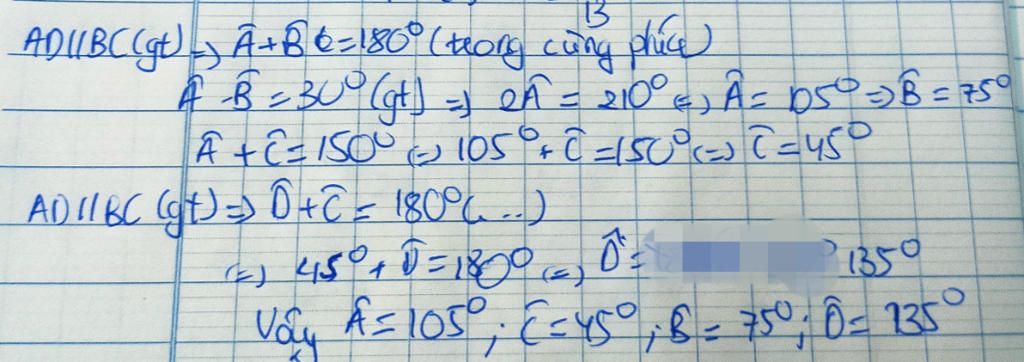 13
AD//BC (gt) => Â + B̂ = 180° (trong cùng phía)
Â - B̂ = 30° (gt) => 2Â = 210° <=> Â = 105° => B̂ = 75°
Â + Ĉ = 150° <=> 105° + Ĉ = 150° <=> Ĉ = 45°
AD//BC (gt) => D̂ + Ĉ = 180° (...)
<=> 45° + D̂ = 180° <=> D̂ = 135°
Vậy Â = 105° ; Ĉ = 45° ; B̂ = 75° ; D̂ = 135°